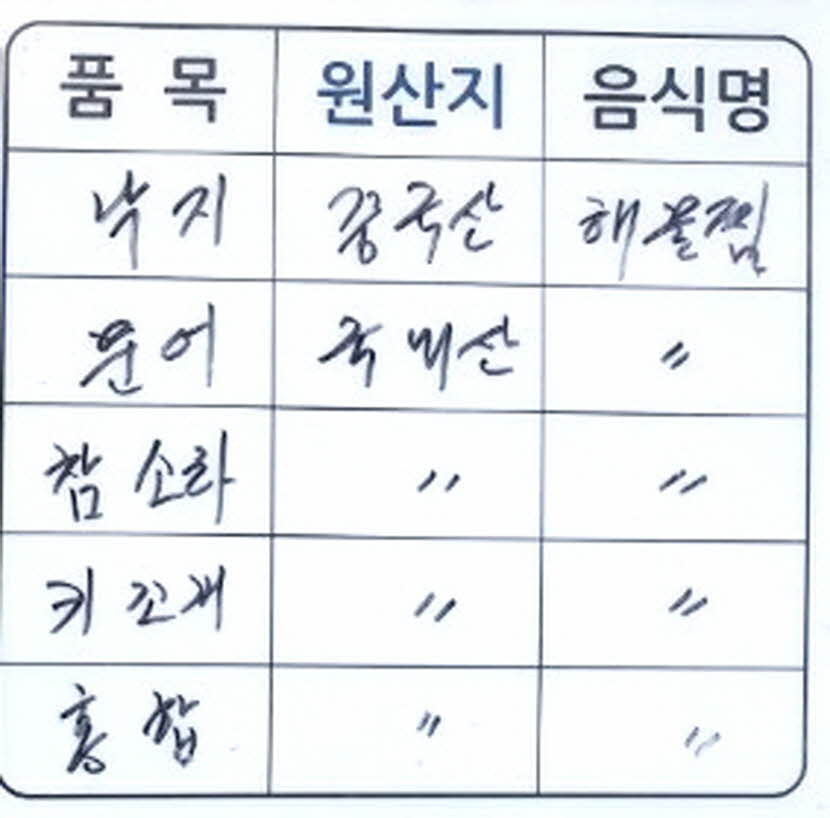 품 목 원산지 음식명
낙지 중국산 해물찜
문어 국내산 〃
참소라 〃 〃
키조개 〃 〃
홍합 〃 〃